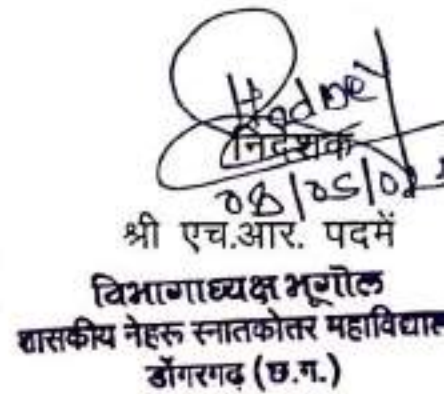 निदेशक
08/05/02
श्री एच.आर. पदमें
विभागाध्यक्ष भूगोल
शासकीय नेहरू स्नातकोत्तर महाविद्याल
डोंगरगढ़ (छ.ग.)